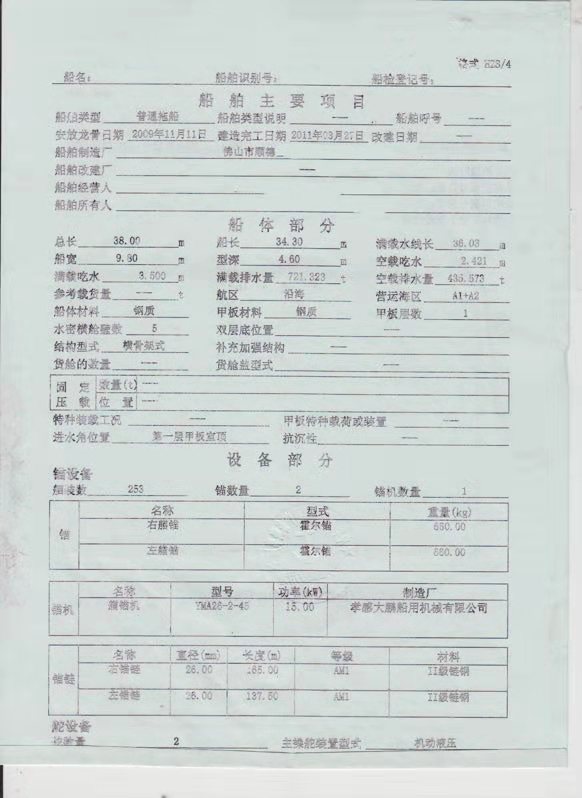 格式 HZS/4
船名： 船舶识别号： 船检登记号：
船舶主要项目
船舶类型 普通拖船 船舶类型说明 —— 船舶呼号 ——
安放龙骨日期 2009年11月11日 建造完工日期 2011年03月27日 改建日期 ——
船舶制造厂 佛山市顺德
船舶改建厂 ——
船舶经营人
船舶所有人
船体部分
总长 38.00 m 船长 34.30 m 满载水线长 36.03 m
船宽 9.60 m 型深 4.60 m 空载吃水 2.421 m
满载吃水 3.500 m 满载排水量 721.323 t 空载排水量 t
参考载货量 —— t 航区 沿海 营运海区 A1+A2
船体材料 钢质 甲板材料 钢质 甲板层数 1
水密横舱壁数 5 双层底位置 ——
结构型式 横骨架式 补充加强结构 ——
货舱的数量 —— 货舱盖型式 ——
固定 数量(t) ——
压载 位置 ——
特种装载工况 —— 甲板特种载荷或装置 ——
进水角位置 第一层甲板室顶 抗沉性 ——
设备部分
锚设备
舾装数 253 锚数量 2 锚机数量 1
名称 型式 重量(kg)
锚
右艏锚 霍尔锚 660.00
左艏锚 霍尔锚 660.00
名称 型号 功率(kW) 制造厂
锚机 艏锚机 YMA26-2-45 15.00 孝感大鹏船用机械有限公司
名称 直径(mm) 长度(m) 等级 材料
锚链
右锚链 26.00 165.00 AM1 II级链钢
左锚链 26.00 137.50 AM1 II级链钢
舵设备
舵数量 2 主操舵装置型式 机动液压